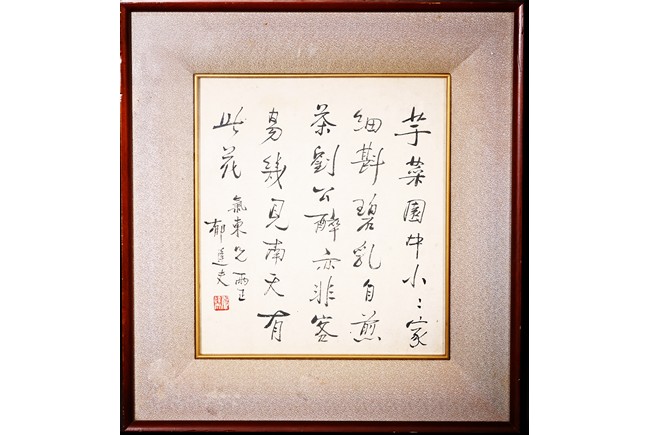 芋菜園中小〻家
細斟碧乳自煎
茶劉公醉亦非容
易幾見南天有
此花
氣東兄
郁達夫